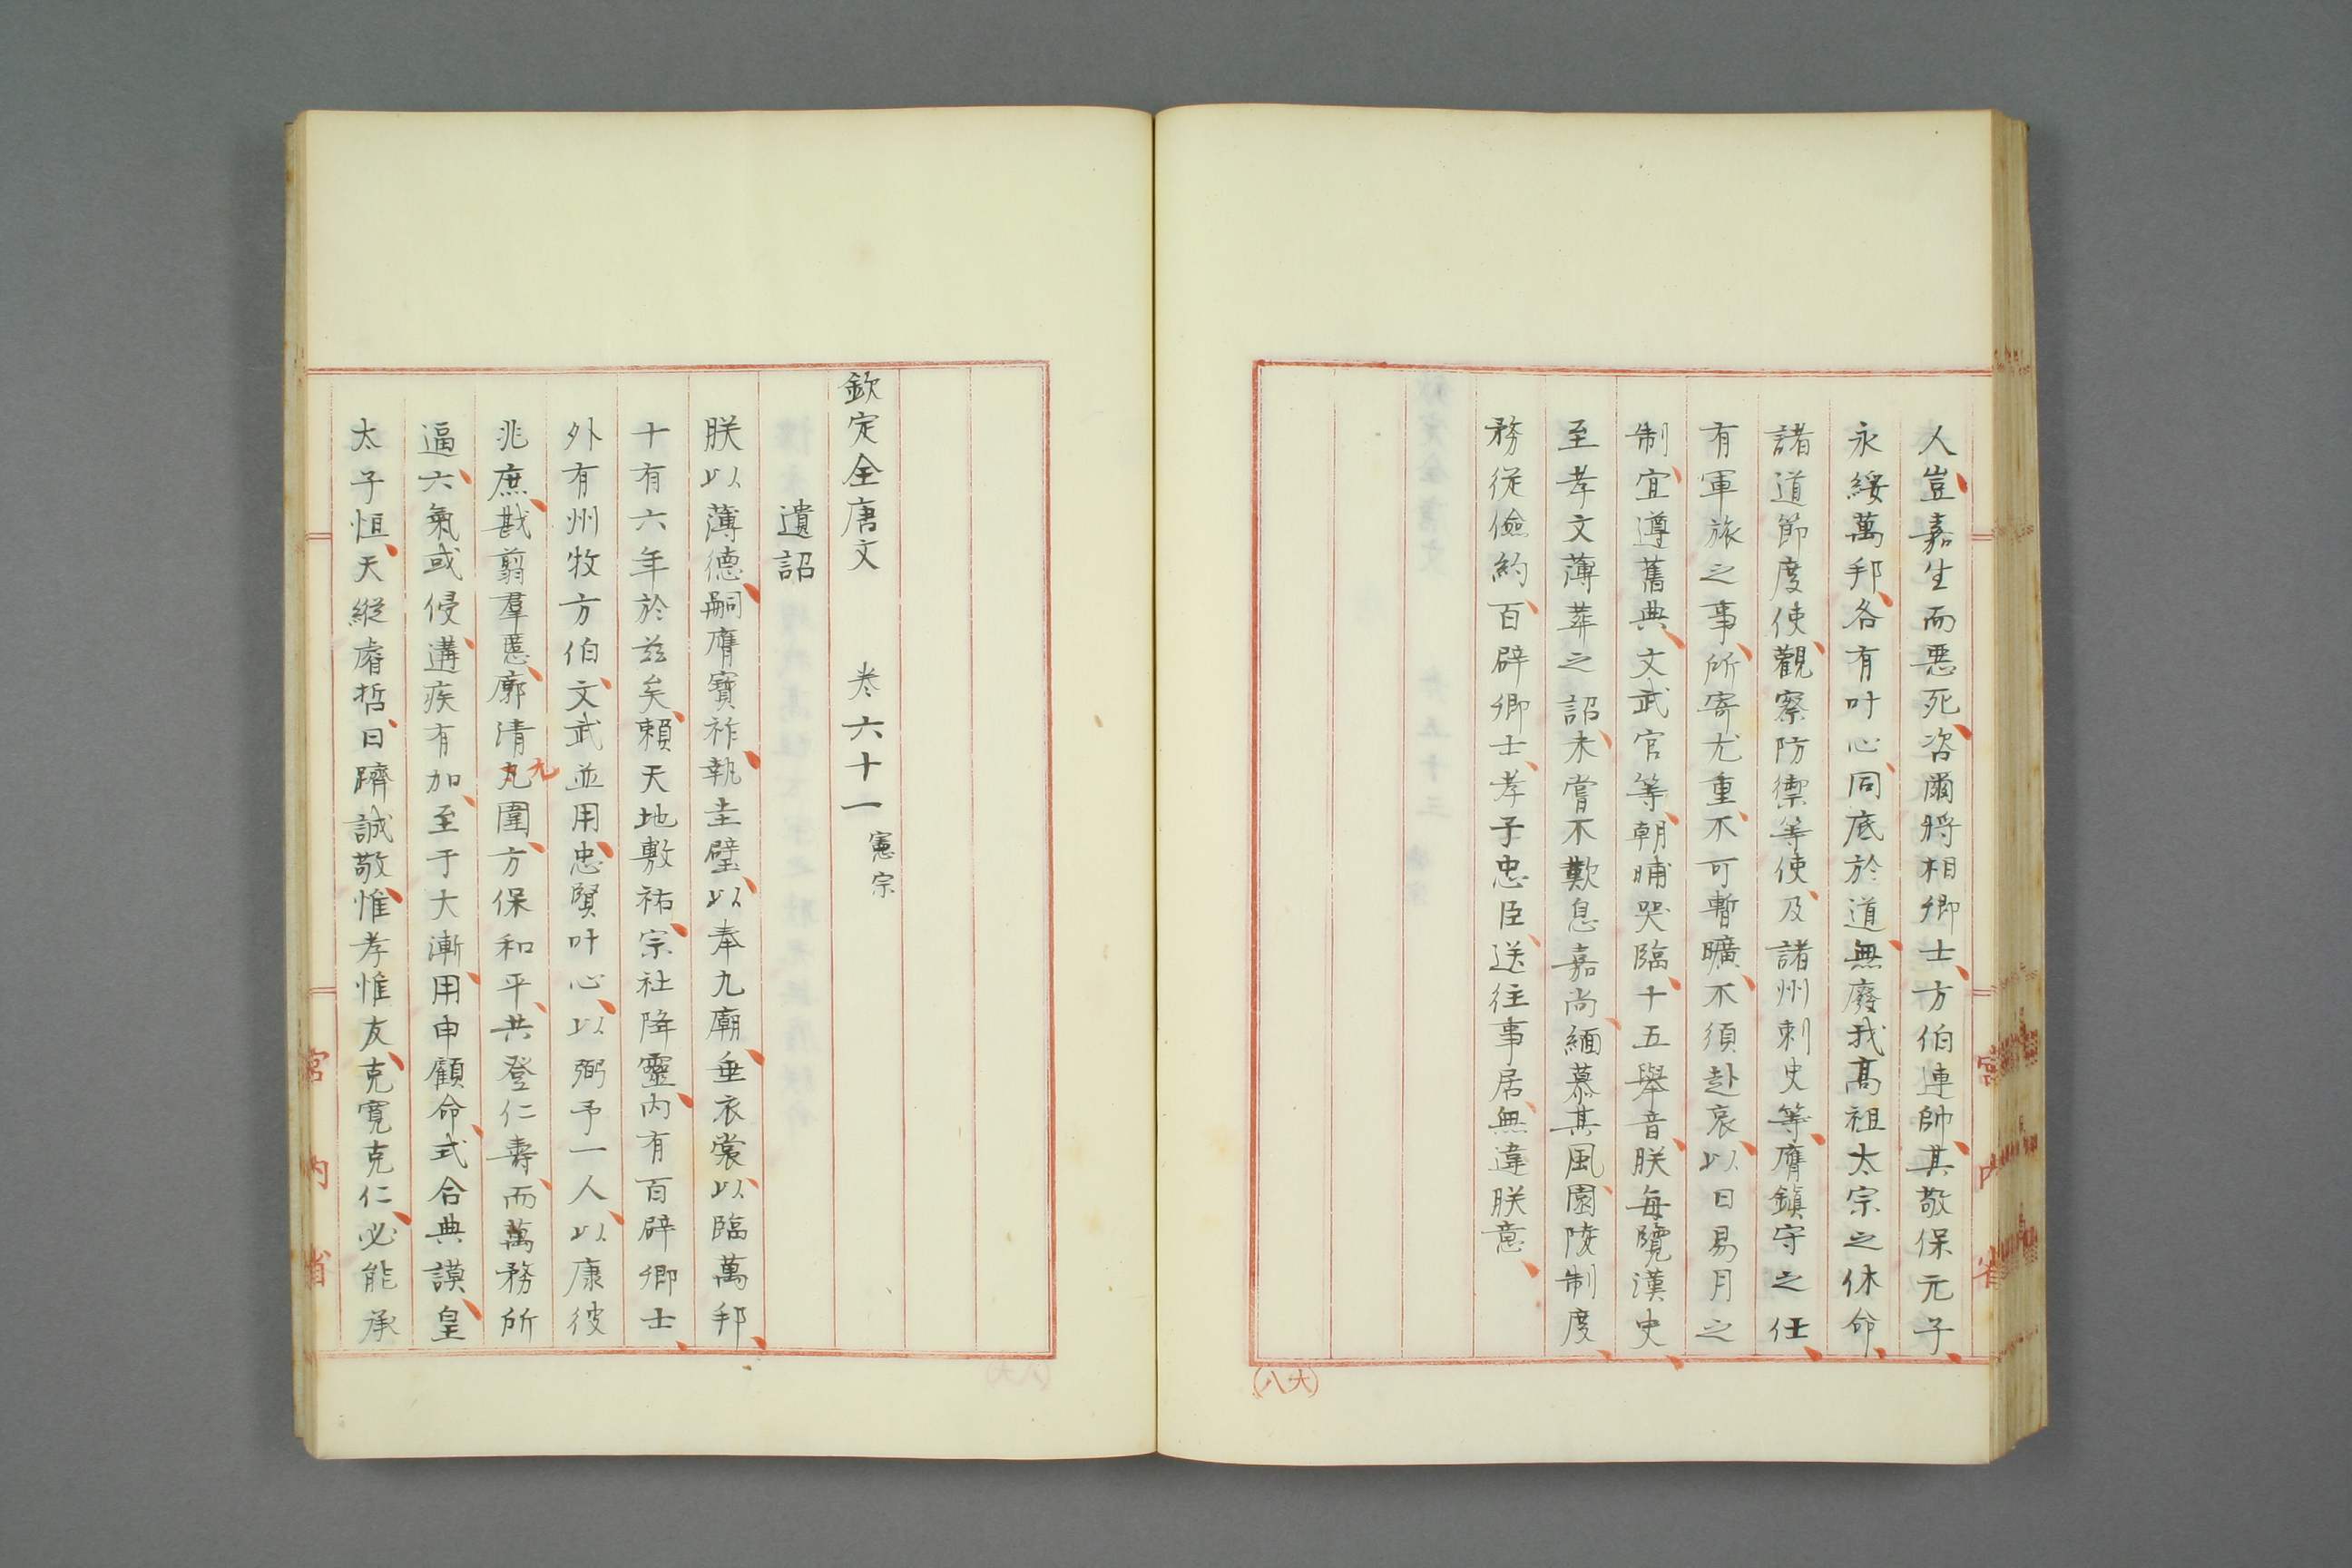 人豈嘉生而惡死咨爾將相卿士方伯連帥其敬保元子
永綏萬邦各有叶心同底於道無廢我高祖太宗之休命
諸道節度使觀察防禦等使及諸州刺史等膺鎮守之任
有軍旅之事所寄尤重不可暫曠不須赴哀以日易月之
制宜遵舊典文武官等朝晡哭臨十五舉音朕每覽漢史
至孝文薄葬之詔未嘗不歎息嘉尚緬慕其風園陵制度
務從儉約百辟卿士孝子忠臣送往事居無違朕意
(大八)
欽定全唐文 卷六十一 憲宗
遺詔
朕以薄德嗣膺寶祚執圭璧以奉九廟垂衣裳以臨萬邦
十有六年於茲矣賴天地敷祐宗社降靈內有百辟卿士
外有州牧方伯文武並用忠賢叶心以弼予一人以康彼
兆庶戡翦羣慝廓清丸圍方保和平共登仁壽而萬務所
九
逼六氣或侵遘疾有加至于大漸用申顧命式合典謨皇
太子恒天縱睿哲日躋誠敬惟孝惟友克寬克仁必能承
宮內省